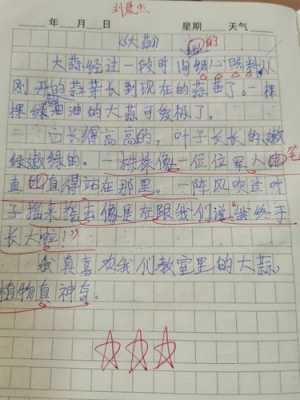 年 月 日 星期 天气
《大蒜》
的
大蒜经过一段时间细心照料从
刚开的蒜芽长到现在的蒜苗了。一棵
棵绿油油的大蒜可好极了。
它长得高高的，叶子长长的，嫩
绿嫩绿的。一株株像一位位军人笔
直的直得站在那里。一阵风吹过叶
子摇来摇去像是在跟我们说“我终于
长大啦！”
我真喜欢我们教室里的大蒜，
植物真神奇。